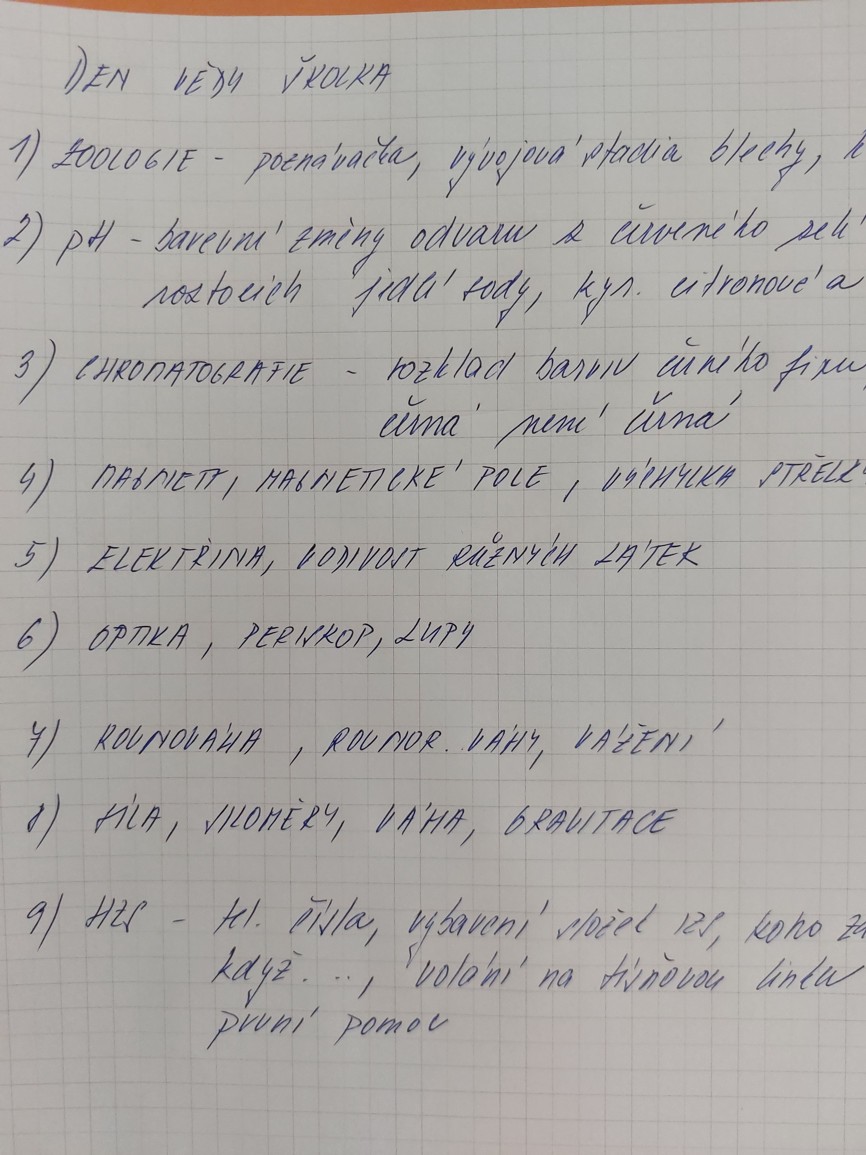 DEN VĚDY ŠKOLKA
1) ZOOLOGIE - poznávačka, vývojová stadia blechy,
2) pH - barevní změny odvaru z červeného zelí
roztocích jedlé sody, kys. citronové a
3) CHROMATOGRAFIE - rozklad barviv černého fixu,
černá není černá
4) MAGNETY, MAGNETICKÉ POLE, VÝCHYLKA STŘELKY
5) ELEKTŘINA, VODIVOST RŮZNÝCH LÁTEK
6) OPTIKA, PERISKOP, LUPY
7) ROVNOVÁHA, ROVNOR. VÁHY, VÁŽENÍ
8) SÍLA, SILOMĚRY, VÁHA, GRAVITACE
9) HZS - tel. čísla, vybavení složek IZS, koho
když..., volání na tísňovou linku
první pomoc